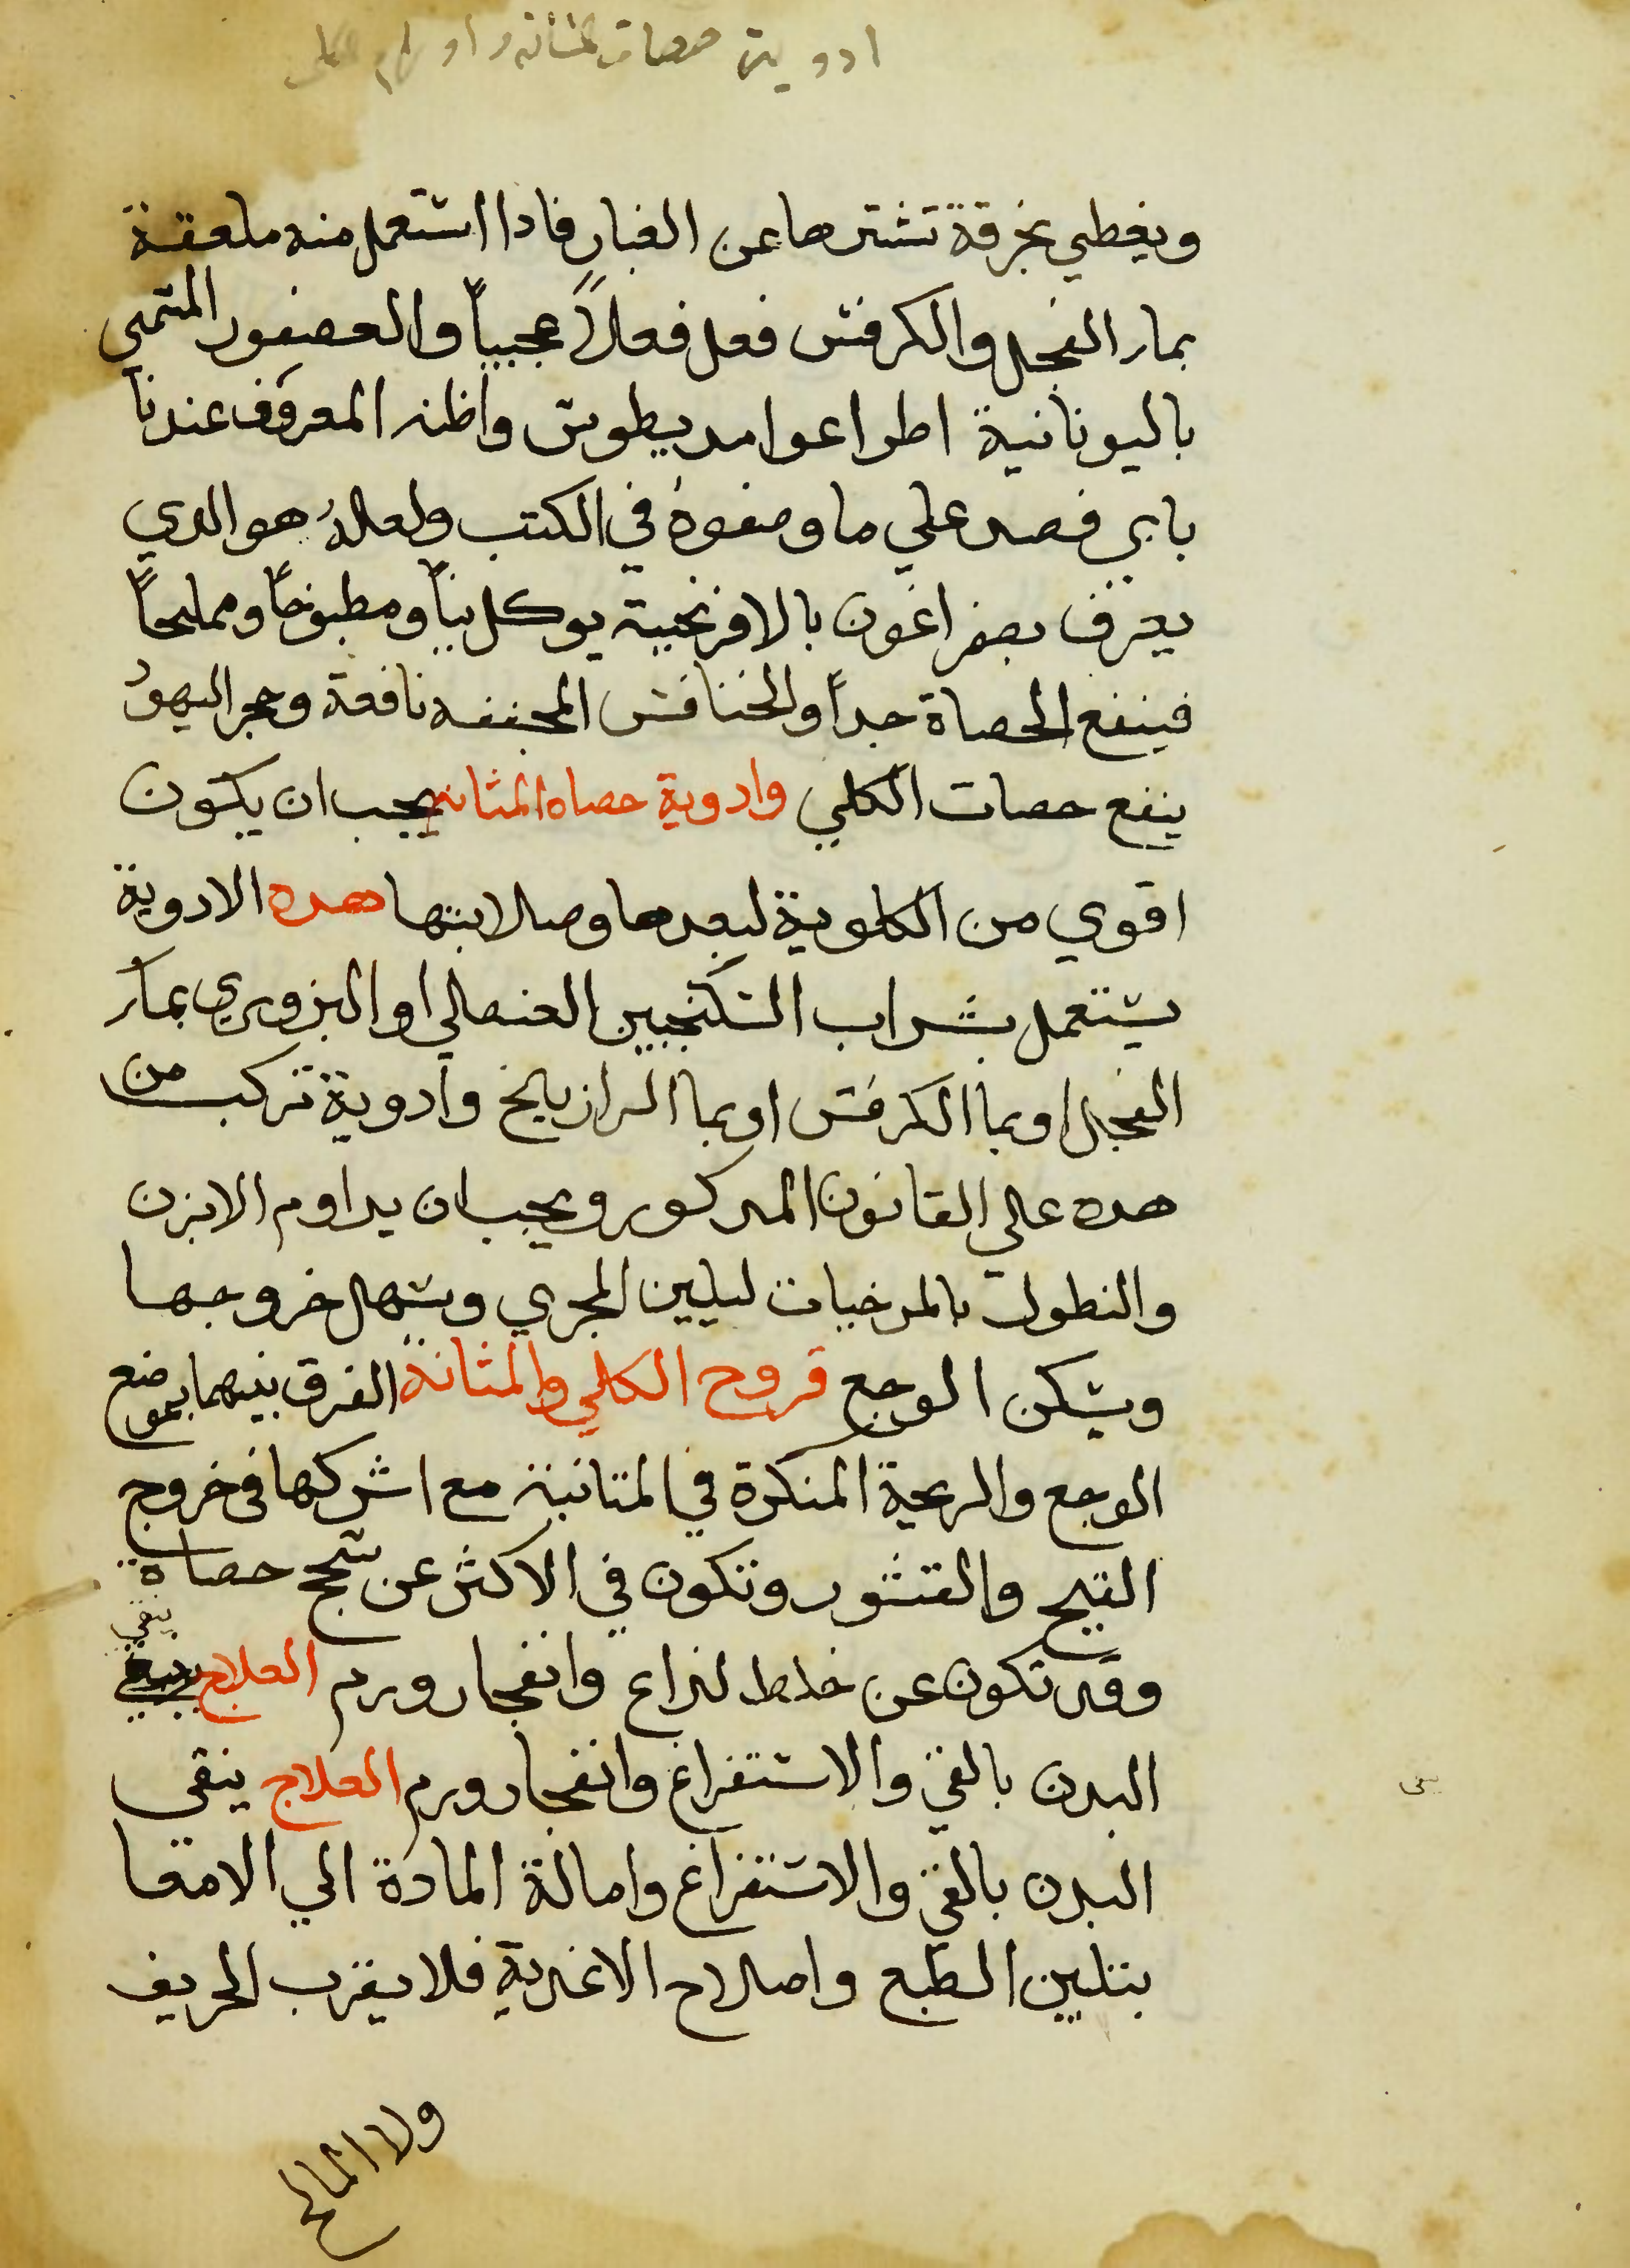 ادوية حصاة المثانه واورام الكلى
ويغطي بخرقة تشترها عن الغبار فادا اشتعمل منه ملعقة
بمار الفجل والكرفش فعل فعلاً عجيباً والعصفور المتمي
باليونانية اطراعوامديطوش واظنه المعروف عندنا
بابي فصد علي ما وصفوهُ في الكتب ولعلهُ هو الدي
يعرف بصفراغون بالافرنجية يوكل نياً ومطبوخاً ومملحاً
فينفع الحصاة جداً والخنافش المجففه نافعة وحجر اليهود
ينفع حصات الكلي وادوية حصاه المثانه يجب ان يكون
اقوي من الكلوية لبعدها وصلابتها هده الادوية
يشتعمل بشراب الشكنجبين العنصلي او البزوري بمار
الفجل او بما الكرفش او بما الرازيانج وادوية تركب من
هده علي القانون المدكور ويجب ان يداوم الابزن
والنطول بالمرخيات ليلين المجري ويشهل خروجها
ويشكن الوجع قروح الكلي والمثانة الفرق بينهما بموضع
الوجع والريحة المنكرة في المتانية مع اشركها في خروج
القيح والقشور وتكون في الاكثر عن شحج حصاة
وقد تكون عن خلط لذاع وانفجار ورم العلاج ينقي
ينقي
البدن بالقي والاشتفراغ وانفجار ورم العلاج ينقى
البدن بالقي والاشتفراغ وامالة المادة الي الامعا
بتليين الطبع واصلاح الاغدية فلا يقرب الحريف
ولا المالح